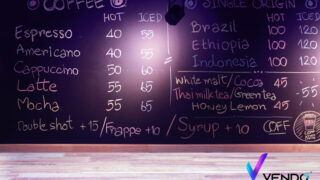 COFFEE
HOT ICED
Espresso 40 50
Americano 40 55
Cappuccino 50 60
Latte 55 65
Mocha 55 65
Double shot +15/Frappe +10
SINGLE ORIGIN
HOT ICED
Brazil 100 120
Ethiopia 100 120
Indonesia 100 120
White malt/Cocoa 45
Thai milk tea/Green tea 55
Honey Lemon 45
Syrup +10
COFF
VENDO